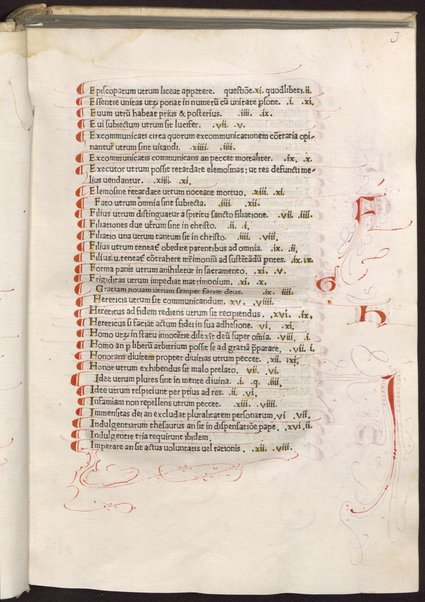 3
Episcopatum utrum liceat appetere. questiõe.xi. quodlibeti.ii.
Essentie unitas utꝝ ponat in numerũ cũ unitate ꝑsone. .i. .xi.
Euum utrũ habeat prius & posterius. .iiii. .ix.
Eui subiectum utrum sit lucifer. .vii. .v.
Excommunicatᵒ circa quorum excommunicationem cõtraria opi-
nantur utrum sint uitandi. .xiiii. .iiii.
Excommunicatis communicans an peccet mortaliter. .ix. .x.
Executor utrum possit retardare elemosinas; ut res defuncti me-
lius uendantur. .xiii. .xi.
Elemosine retardate utrum noceant mortuo. .xiii. .xi.
Fato utrum omnia sint subiecta. .iiii. .iii.
Filius utrum distinguatur a spiritu sancto filiatione. .vii. .iiii.
Filiationes due utrum sint in christo. .ii. .i.
Filiatio una utrum tantum sit in christo. .iiii. .viii.
Filius utrum teneatᵉ obedire parentibus ad omnia. .ix. .ii.
Filius.u.teneatᵉ cõtrahere mr̃imoniũ ad suftẽtãdũ pñtes. .ix.ix.
Forma panis utrum anihiletur in sacramento. .xi. .v.
Frigiditas utrum impediat matrimonium. .xi. .x.
Gratiam nouam utrum semper faciat deus. .ix. .iiii.
Hereticis utrum sit communicandum. xv. .viiii.
Hereticus ad fidem rediens utrum sit recipiendus. .xvi. .ix.
Hereticus si faciat actum fidei in sua adhesione. vi. .xi.
Homo utꝝ in statu innocẽtie dilexĩt deũ super omnia. .viii. .i.
Homo an ꝑ liberũ arbitrium posse se ad gratiã p̃parare. .vii. .i.
Honorans diuitem propter diuitias utrum peccet. .xii. .ixi.
Honor utrum exhibendus sit malo prelato. .vii. .vi.
Idee utrum plures sint in mente diuina. .i. .q. .iiii.
Idee utrum respiciunt per prius ad res. .ii. .vi.
Infamiam non repellens utrum peccet. .xiii. .viiii.
Immensitas dei an excludat pluralitatem personarum. vi .vii.
Indulgentiarum thesaurus an sit in dispensatiõe pape. .xvi .ii.
Indulgentie tria requirunt ibidem.
Imperare an sit actus uoluntatis uel rationis. .xii. .viii.